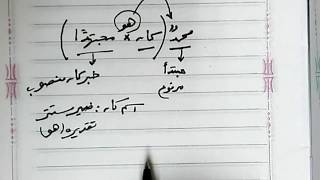 هو
محمدٌ (كان * مجتهدًا)
مبتدأ خبر كان منصوب
مرفوع
اسم كان: ضمير مستتر
تقديره (هو)